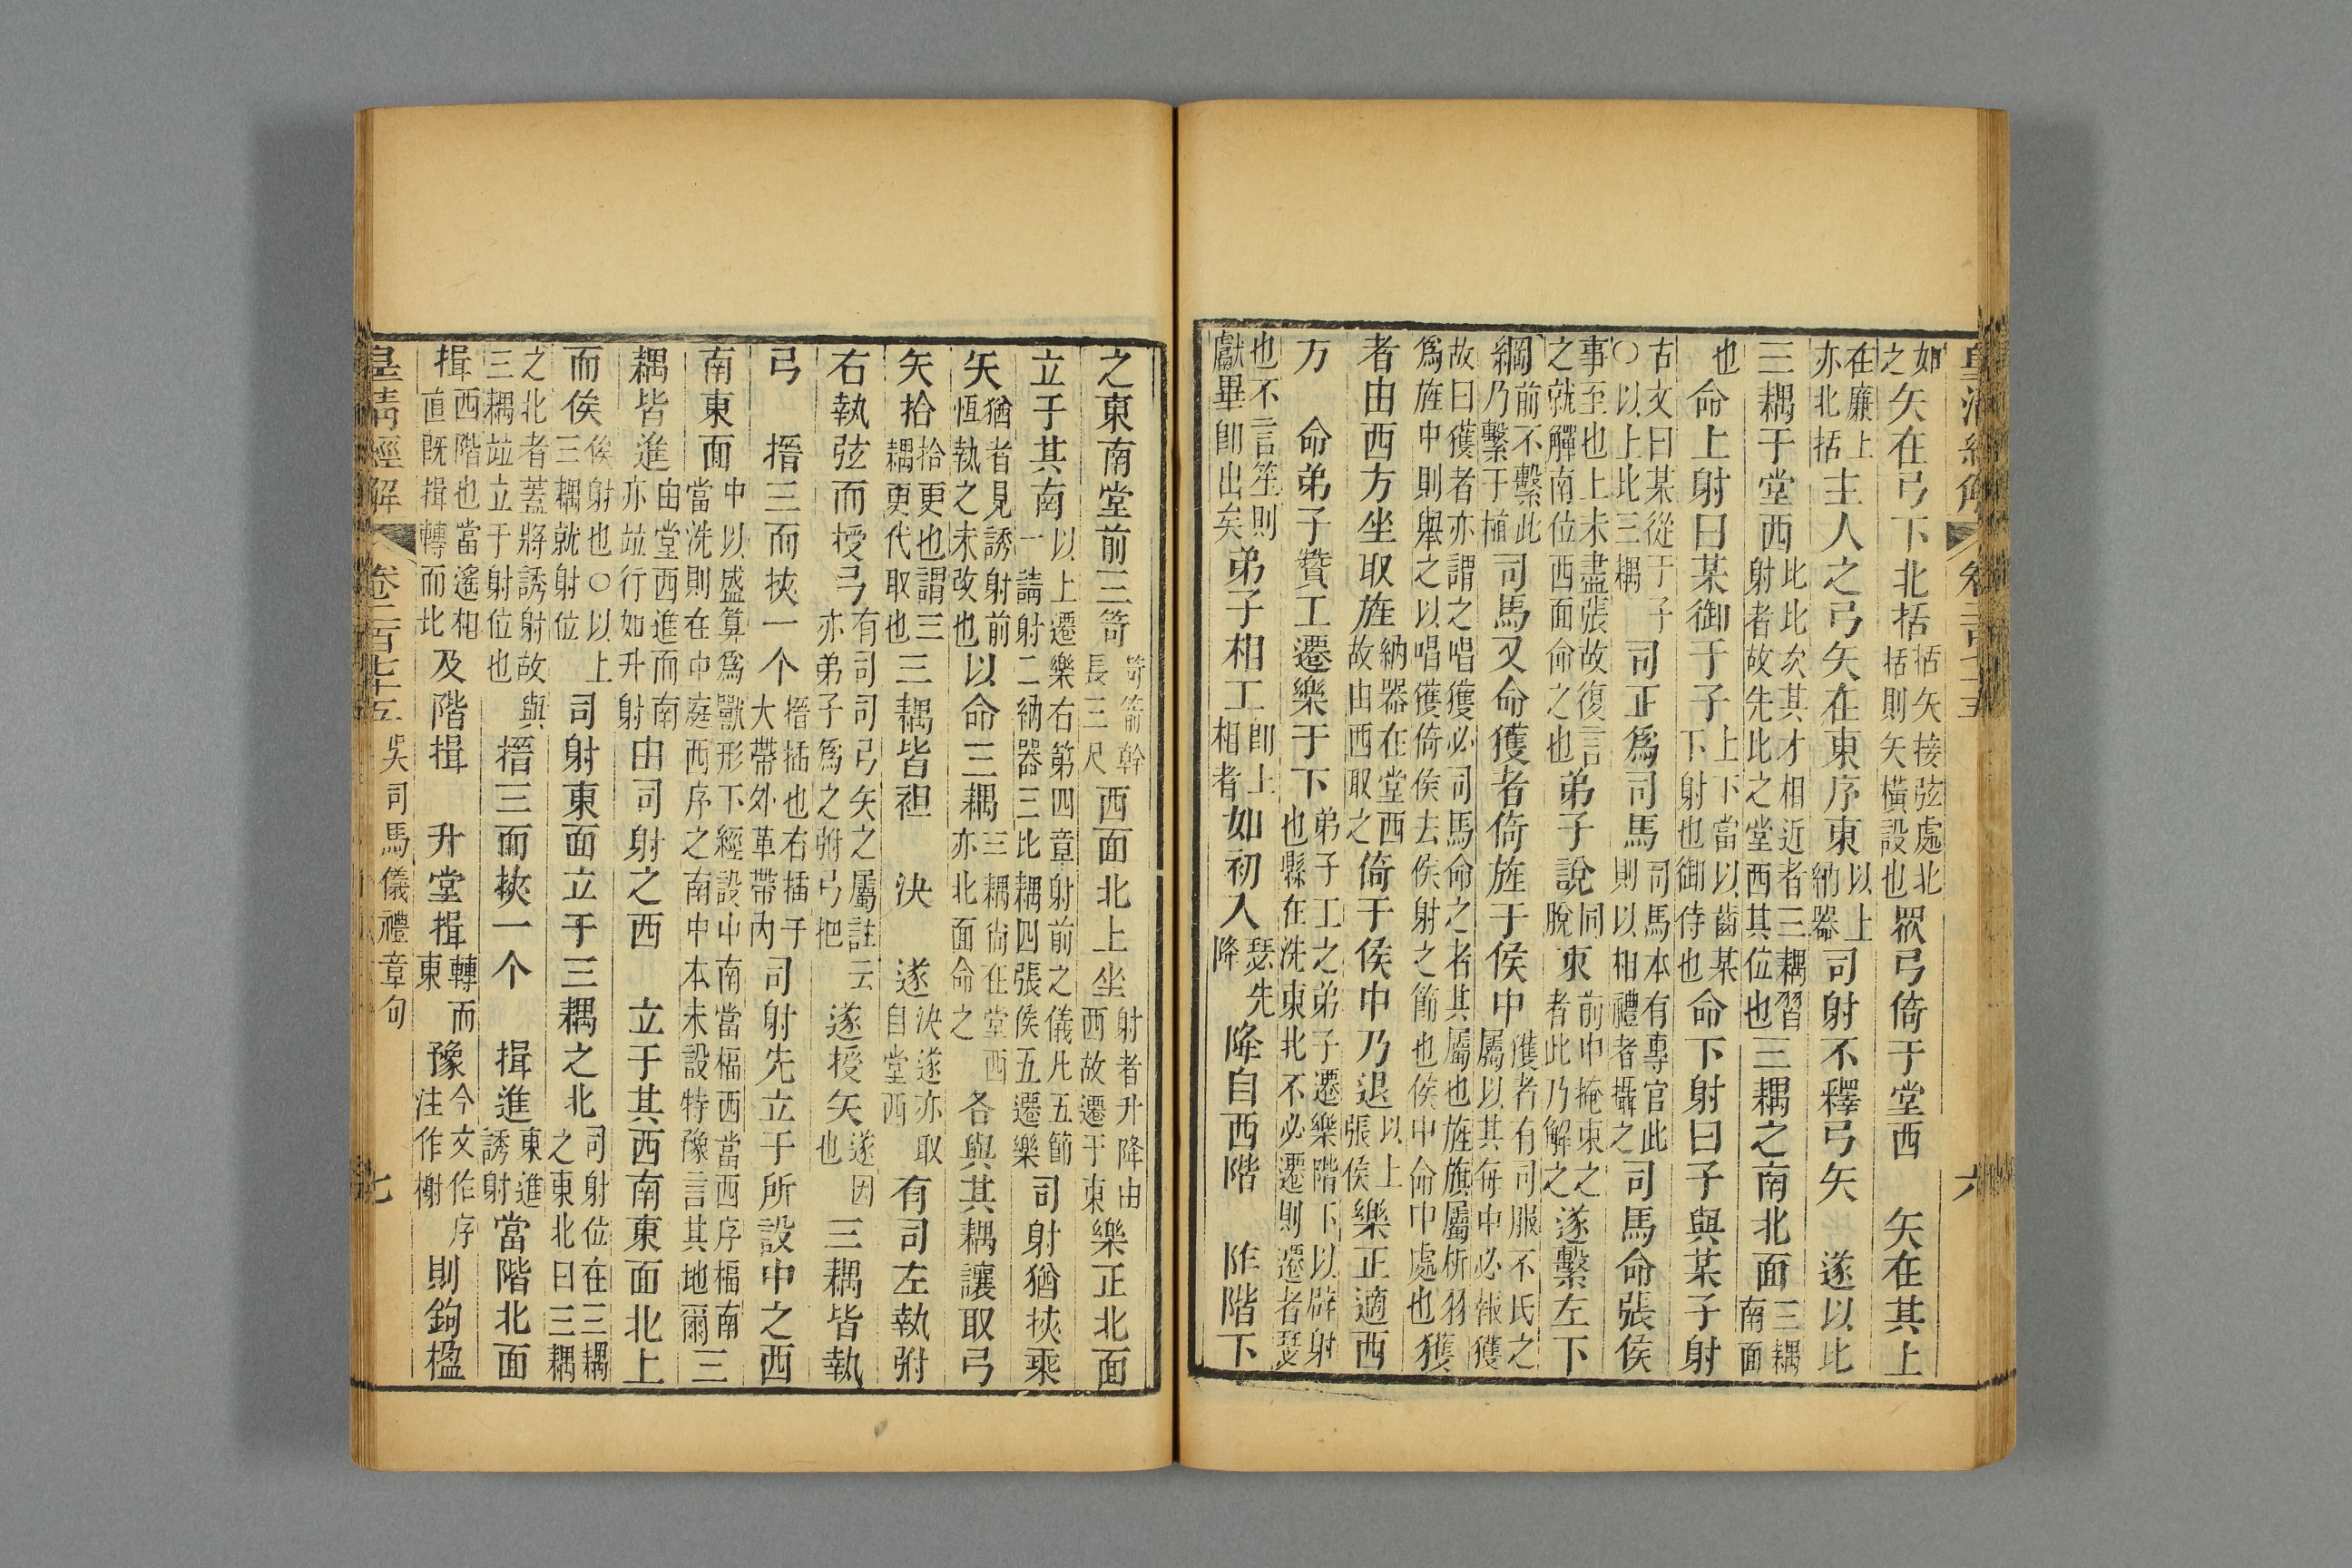 皇清經解 卷二百七十五 六
如之矢在弓下北括括矢接弦處北括則矢橫設也眾弓倚于堂西 矢在其上
在廉上亦北括主人之弓矢在東序東以上納器司射不釋弓矢 遂以比
三耦于堂西比比次其才相近者三耦習射者故先比之堂西其位也三耦之南北面三耦南面
也命上射曰某御于子上下當以齒某下射也御侍也命下射曰子與某子射
古文曰某從于子○以上比三耦司正爲司馬司馬本有專官此則以相禮者攝之司馬命張侯
事至也上未盡張故復言之就觶南位西面命之也弟子說同脫束前中掩束之者此乃解之遂繫左下
綱前不繫此乃繫于植司馬又命獲者倚旌于侯中獲者有司服不氏之屬以其每中必報獲
故曰獲者亦謂之唱獲必司馬命之者其屬也旌旗屬析羽爲旌中則舉之以唱獲倚侯去侯射之節也侯中命中處也獲
者由西方坐取旌納器在堂西故由西取之倚于侯中乃退以上張侯樂正適西
方 命弟子贊工遷樂于下弟子工之弟子遷樂階下以辟射也縣在洗東北不必遷則遷者瑟
也不言笙則獻畢卽出矣弟子相工卽上相者如初入瑟先降降自西階 阼階下
之東南堂前三笴笴箭幹長三尺西面北上坐射者升降由西故遷于東樂正北面
立于其南以上遷樂右第四章射前之儀凡五節一請射二納器三比耦四張侯五遷樂司射猶挾乘
矢猶者見誘射前恆執之未改也以命三耦三耦尙在堂西亦北面命之各與其耦讓取弓
矢拾拾更也謂三耦更代取也三耦皆袒 決 遂決遂亦取自堂西有司左執弣
右執弦而授弓有司司弓矢之屬註云亦弟子爲之弣弓把遂授矢遂因也三耦皆執
弓 搢三而挾一个搢插也右插于大帶外革帶內司射先立于所設中之西
南東面中以盛算爲獸形下經設中南當楅西當西序楅南當洗則在中庭西序之南中本未設特豫言其地爾三
耦皆進由堂西進而南亦竝行如升射由司射之西 立于其西南東面北上
而俟俟射也○以上三耦就射位司射東面立于三耦之北司射位在三耦之東北曰三耦
之北者蓋將誘射故與三耦竝立于射位也搢三而挾一个 揖進東進誘射當階北面
揖西階也當遙相直既揖轉而此及階揖 升堂揖轉而東豫今文作序注作榭則鉤楹
皇清經解 卷二百七十五 吳司馬儀禮章句 七